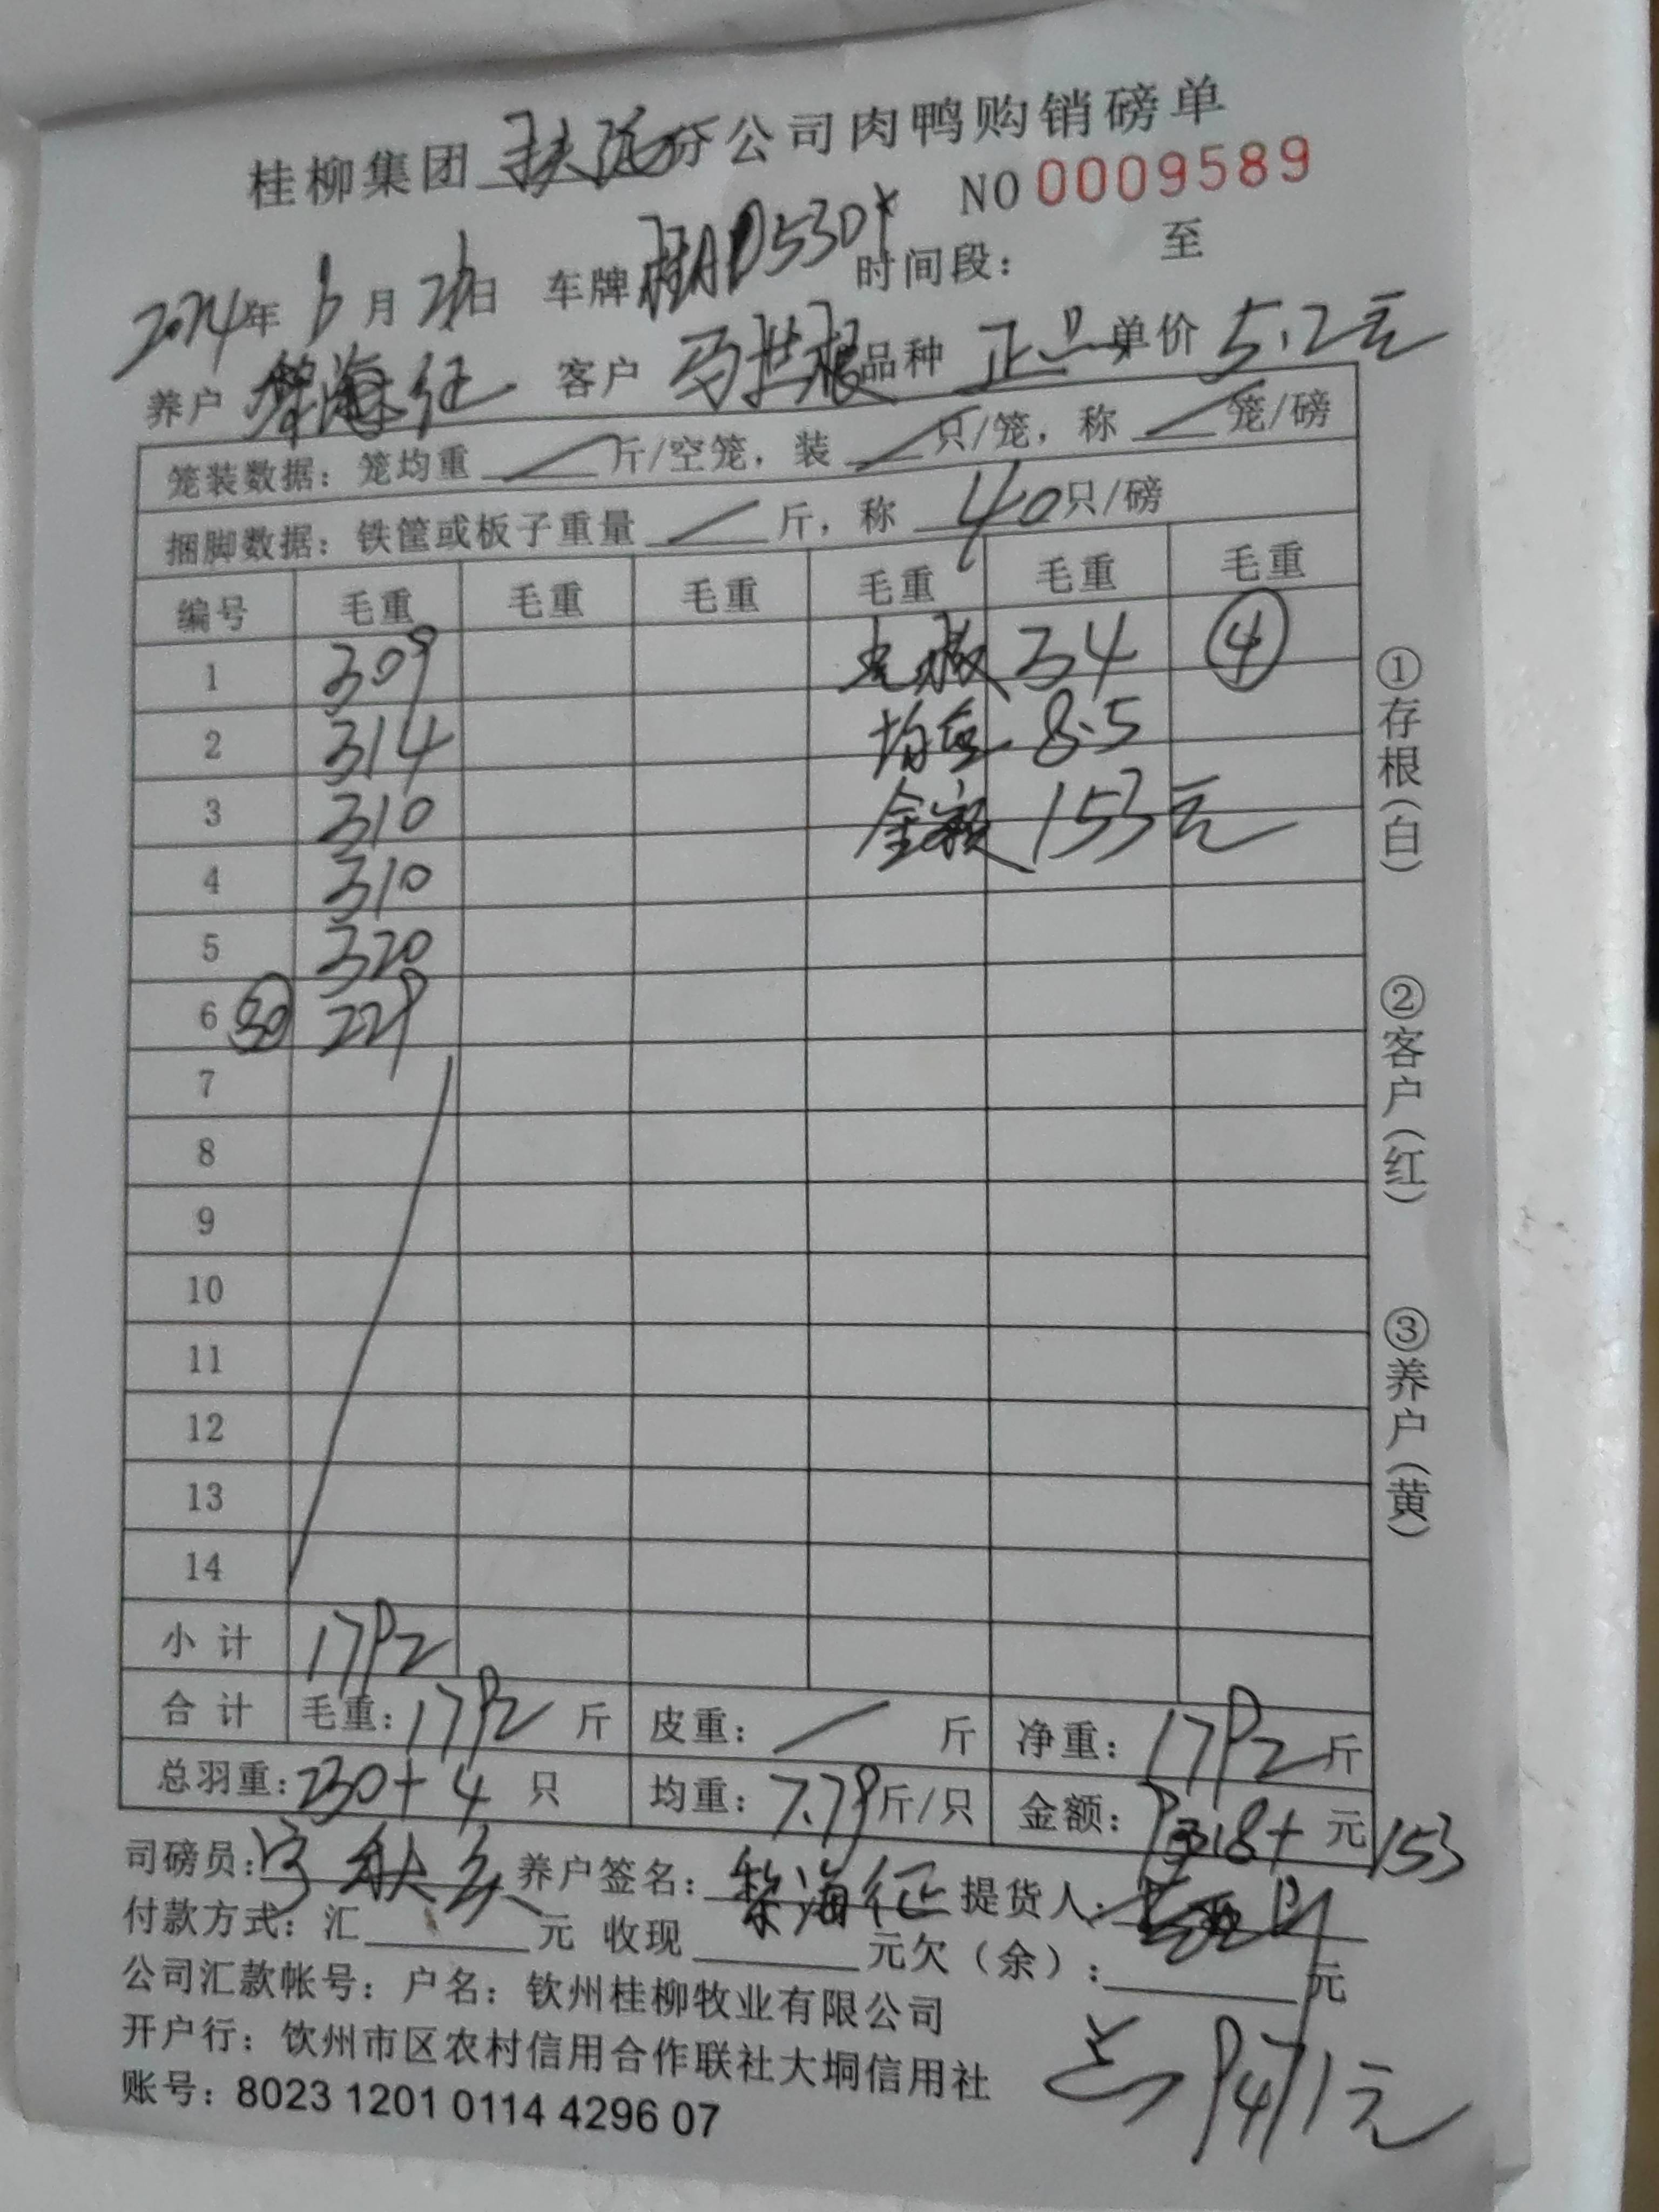 桂柳集团 分公司肉鸭购销磅单
NO 0009589
2024年 6月 日 车牌 桂AD530 时间段： 至
养户 黎海征 客户 马世根 品种 正品 单价 5.2元
笼装数据：笼均重 斤/空笼，装 只/笼，称 笼/磅
捆脚数据：铁筐或板子重量 斤，称 40只/磅
编号 毛重 毛重 毛重 毛重 毛重 毛重
1 309 34 ④
2 314 均重 8.5
3 310 金额 153元
4 310
5 320
6 ㉚ 229
7
8
9
10
11
12
13
14
小计 1792
合计 毛重：1792 斤 皮重： 斤 净重：1792斤
总羽重：230+4 只 均重：7.79斤/只 金额：9318+ 元 153
司磅员： 养户签名：黎海征 提货人：
付款方式：汇 元 收现 元欠（余）： 元
公司汇款帐号：户名：钦州桂柳牧业有限公司
开户行：钦州市区农村信用合作联社大垌信用社
账号：8023 1201 0114 4296 07
9471元
①存根（白）
②客户（红）
③养户（黄）